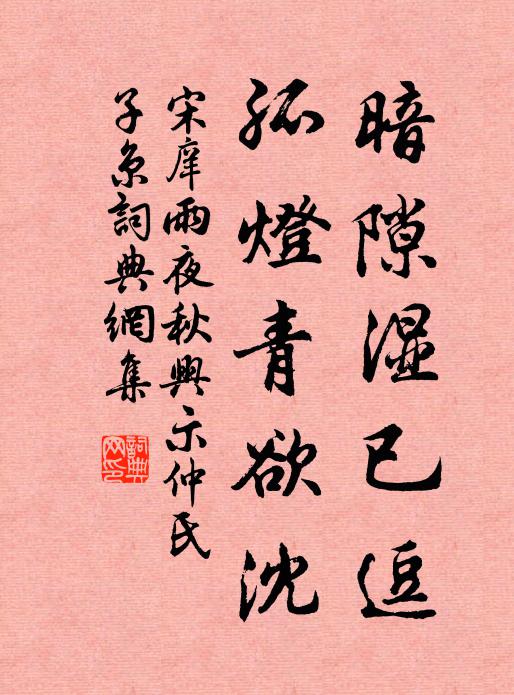 暗隙湿已逗
孤燈青欲沈
宋庠雨夜秋興示仲氏
子京詞典網集
詞典网印